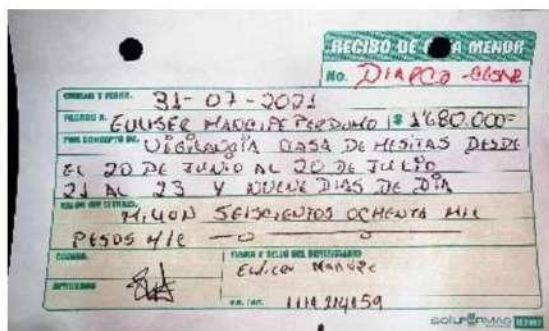 RECIBO DE CAJA MENOR
No. DIARCO -
CIUDAD Y FECHA. 31-07-2021
PAGADO A. EULISER MANCIPE PERDOMO $ 1'680.000=
POR CONCEPTO DE. VIGILANCIA CASA DE MESITAS DESDE
EL 20 DE JUNIO AL 20 DE JULIO
21 AL 23 Y NUEVE DIAS DE DIA
VALOR (EN LETRAS).
MILLON SEISCIENTOS OCHENTA MIL
PESOS M/C
CODIGO. FIRMA Y SELLO DEL BENEFICIARIO
Euliser Mancipe
APROBADO
C.C. / NIT. 1114214159
SOLUFORMAS